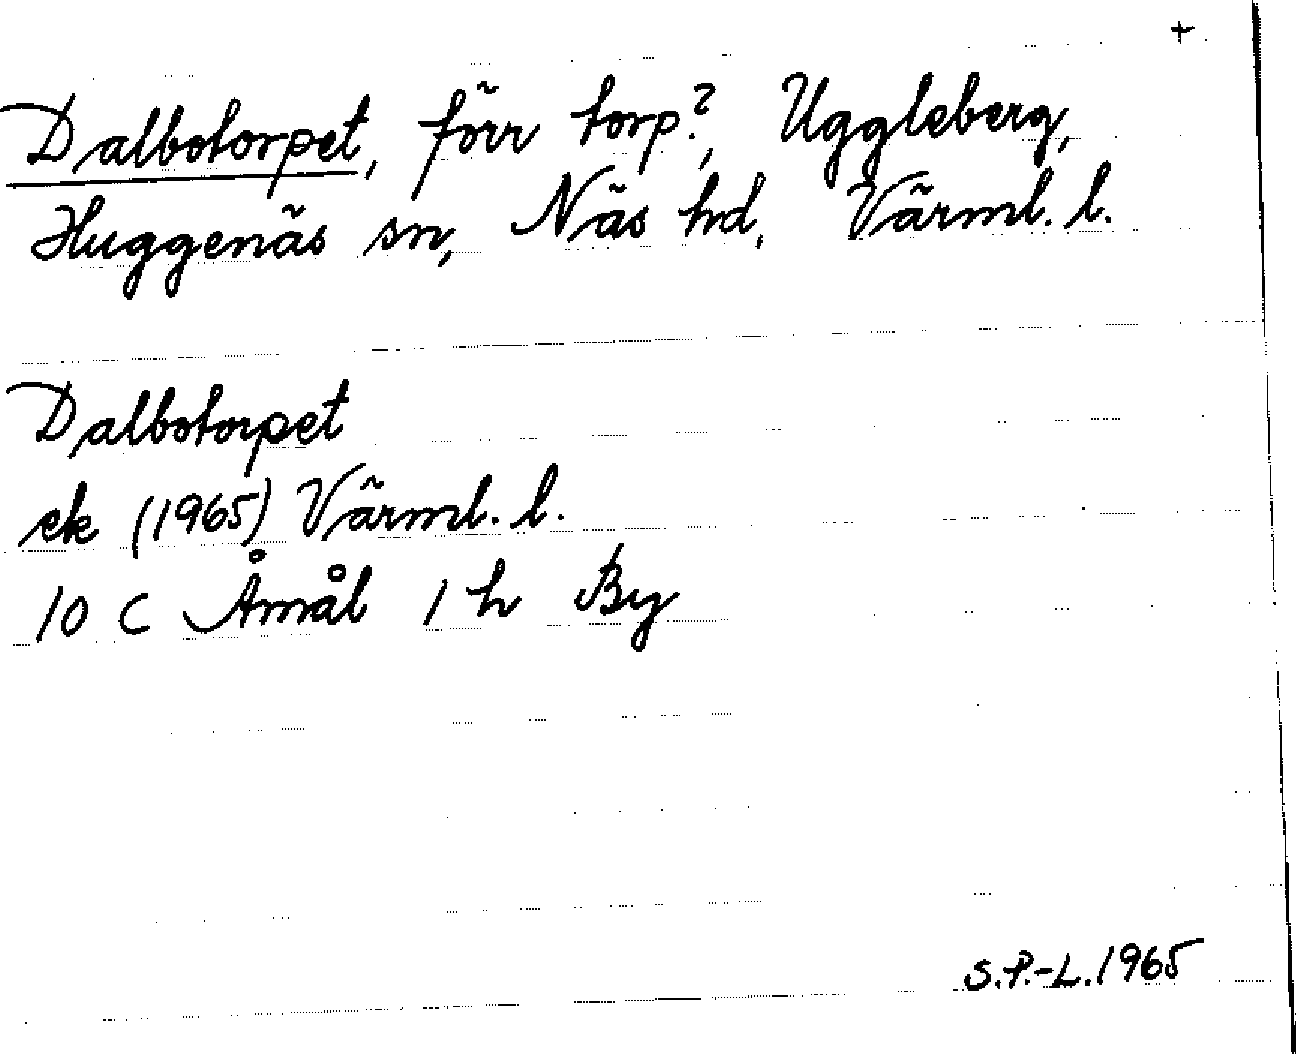 +
Dalbotorpet, förr torp?, Uggleberg,
Huggenäs sn, Näs hd, Värml. l.
Dalbotorpet
ek (1965) Värml. l.
10 C Åmål 1 h By
S.P.-L. 1965